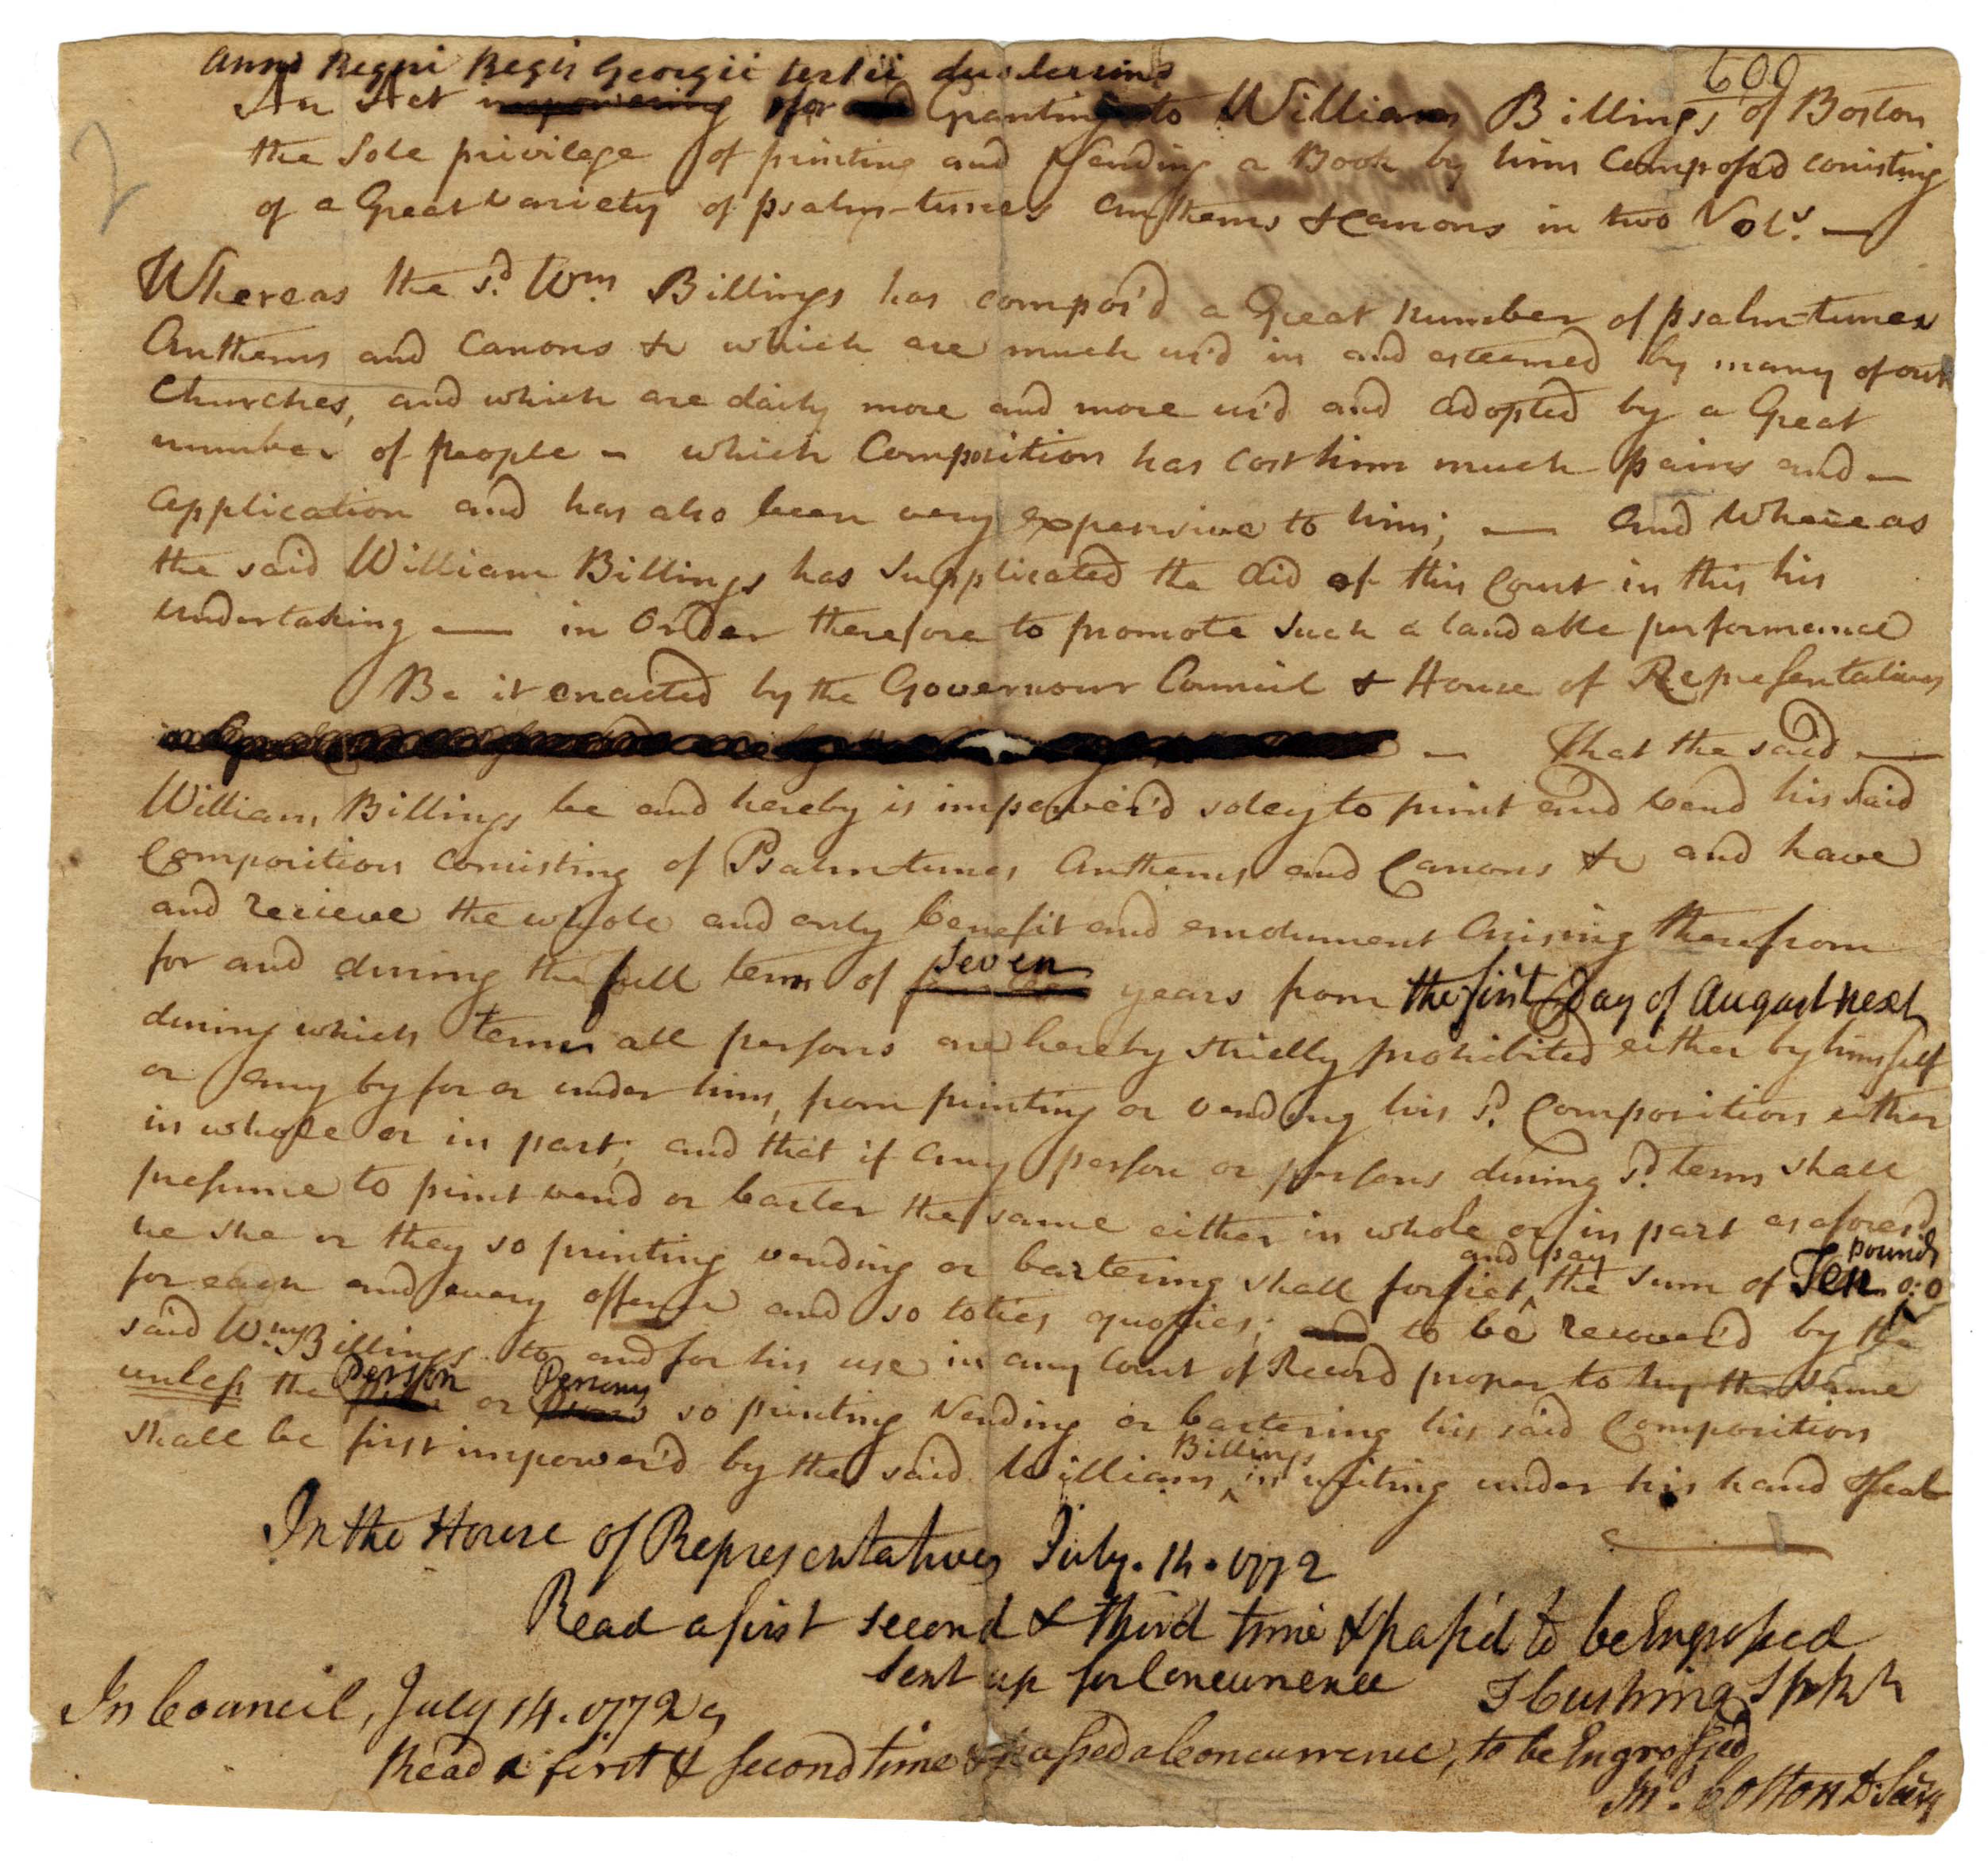 600
2
Anno Regni Regis Georgii tertii duodecimo
An Act impowering for Granting to William Billings of Boston
the Sole privilege of printing and Vending a Book by him Compos'd consisting
of a Great variety of psalm-tunes Anthems & Canons in two Vols. —
Whereas the sd. Wm. Billings has compos'd a Great number of psalm-tunes
Anthems and Canons &c which are much us'd in and esteemed by many of our
Churches, and which are daily more and more us'd and adopted by a Great
number of people – which Composition has cost him much pains and —
application and has also been very expensive to him; — And Whereas
the said William Billings has Supplicated the Aid of this Court in this his
undertaking — in Order therefore to promote such a laudable performance
Be it enacted by the Governour Council & House of Representatives
— That the said —
William Billings be and hereby is impower'd soley to print and vend his said
Composition consisting of Psalm-tunes Anthems and Canons &c and have
and recieve the whole and only benefit and emolument Arising therefrom
for and during the full term of Seven years from the first Day of August next
during which term all persons are hereby strictly prohibited either by himself
or any by for or under him, from printing or vending his sd. Composition either
in whole or in part; and that if any person or persons during sd. term shall
presume to print vend or barter the same either in whole or in part as aforesd
he she or they so printing vending or bartering shall forfiet and pay the sum of Ten pounds
for each and every offence and so toties quoties; and to be recover'd by the
said Wm. Billings to and for his use in any Court of Record proper to try the same
unless the Person or Persons so printing Vending or bartering his said Composition
shall be first impower'd by the said William Billings in writing under his hand & Seal
In the House of Representatives July. 14. 1772
Read a first second & third time & pass'd to be Engrossed
Sent up for Concurrence
T Cushing Spkr
In Council, July 14. 1772
Read a first & second time & passed a Concurrence, to be Engrossed
Jno. Cotton D. Secry